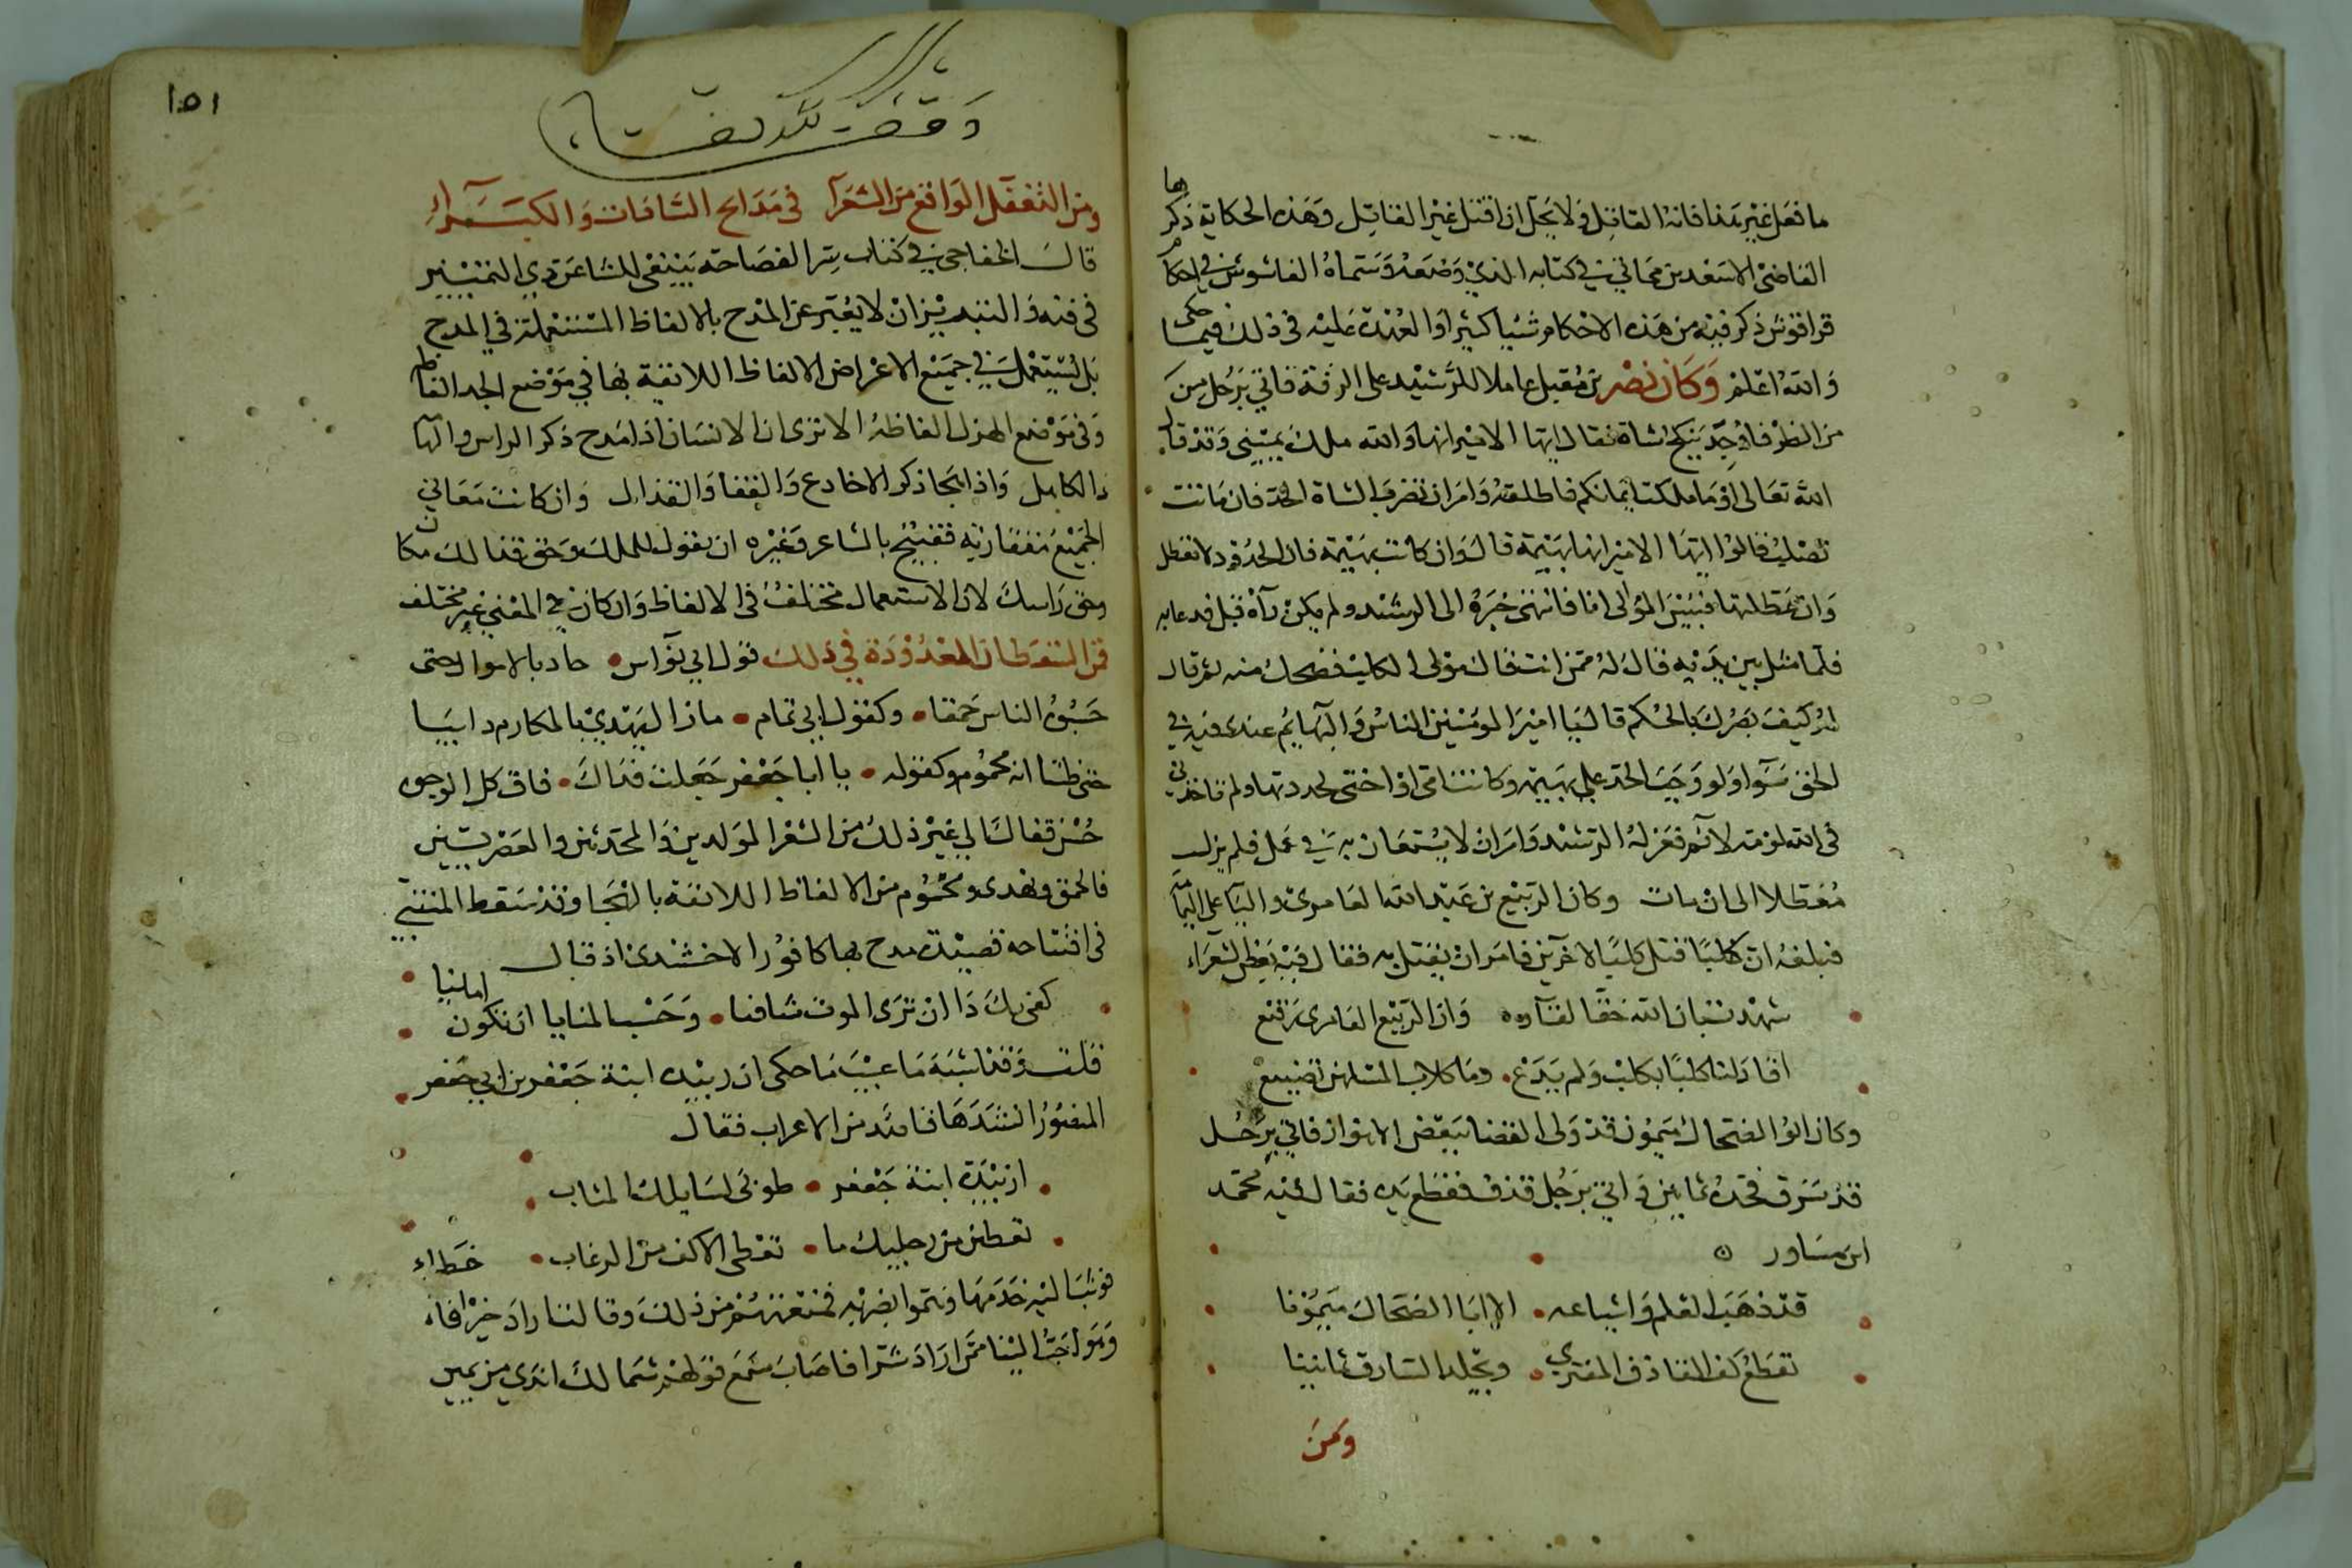 ما فعل غير هذا فانه القاتل ولا يحل ان اقتل غير القاتل وهذه الحكاية ذكرها
القاضي الاسعد بن مماتي في كتابه الذي وضعه وسماه الفاشوش في احكام
قراقوش ذكر فيه من هذه الاحكام شيا كثيرا والعهدة عليه في ذلك فيما حكى
والله اعلم وكان نصر بن مقبل عاملا للرشيد على الرقة فاتي برجل من
من الظرفا وجد ينكح شاة فقال ايها الامير انها والله ملك يميني وقد قال
الله تعالى او ما ملكت ايمانكم فاطلقه وامر ان تضرب الشاة الحد فان ماتت
تصلب قالوا ايها الامير انها بهيمة قال وان كانت بهيمة فان الحدود لا تعطل
وان عطلتها فبيس الوالي انا فانتهى خبره الى الرشيد ولم يكن رآه قبل فدعا به
فلما مثل بين يديه قال له ممن انت قال مولى لكلب فضحك منه ثم قال
له كيف بصرك بالحكم قال يا امير المومنين الناس والبهايم عندي في
الحق سوا ولو وجب الحد على بهيمة وكانت امي او اختي لحددتها ولم تاخذني
في الله لومة لايم فعزله الرشيد وامر ان لا يستعان به في عمل فلم يزل
معطلا الى ان مات وكان الربيع بن عبد الله العامري واليا على اليمامة
فبلغه ان كلبا قتل كلبا لاخرين فامر ان يقتل به فقال فيه بعض الشعراء
شهدت بان الله حقا لقاوه وان الربيع العامري رقيع
اقاد لنا كلبا بكلب ولم يدع وما كلاب المسلمين تضيع
وكان ابو الضحاك ميمون قد ولى القضا ببعض الاهواز فاتي برجل
قد سرق فحده ثمانين واتي برجل قذف فقطع يده فقال فيه محمد
ابن مساور
قد ذهب العلم واشياعه الا ابا الضحاك ميمونا
تقطع كف القاذف المفتري ويجلد السارق ثمانينا
ومن
١٥١
ومن التغفل الواقع من الشعرآ في مدايح السادات والكبرآء
قال الخفاجي في كتاب سر الفصاحة ينبغي للشاعر ذي التمييز
في فنه والتبريز ان لا يعبر عن المدح بالالفاظ المستعملة في المدح
بل يستعمل في جميع الاغراض الالفاظ اللايقة بها في موضع الجد الفاظه
وفي موضع الهزل الفاظه الا ترى ان الانسان اذا مدح ذكر الراس والهامة
والكاهل واذا هجا ذكر الاخادع والقفا والقذال وان كانت معاني
الجميع متقاربة فقبيح بالشاعر وغيره ان يقول للملك وحق قفاك مكان
وحق راسك لان الاستعمال مختلف في الالفاظ وان كان في المعنى غير مختلف
فمن السقطات المعدودة في ذلك قول ابي نواس جاد بالاموال حتى
حسبوه الناس حمقا وكقول ابي تمام ما زال يهذي بالمكارم دايبا
حتى ظننا انه محموم وكقوله يا ابا جعفر جعلت فداك فاق كل الوجوه
حسن قفاك الى غير ذلك من الشعر المولدين والمحدثين والعصريين
فالحمق ويهذي ومحموم من الالفاظ اللايقة بالهجا وقد سقط المتنبي
في افتتاحه قصيدة مدح بها كافور الاخشيدي اذ قال
كفى بك دا ان ترى الموت شافيا وحسب المنايا ان تكون امانيا
قلت وقد اشبه ما عيب ما حكى ان زبيدة ابنة جعفر بن ابي جعفر
المنصور انشدها قايد من الاعراب فقال
ازبيدة ابنة جعفر طوبى لسايلك المثاب
تعطين من رجليك ما تعطي الاكف من الرغاب
فوثب اليه خدمها وهموا بضربه فمنعتهم من ذلك وقالت اراد خيرا فاخطاء
وهو احب الينا ممن اراد شرا فاصاب سمع قولهم شمالك اندى من يمين